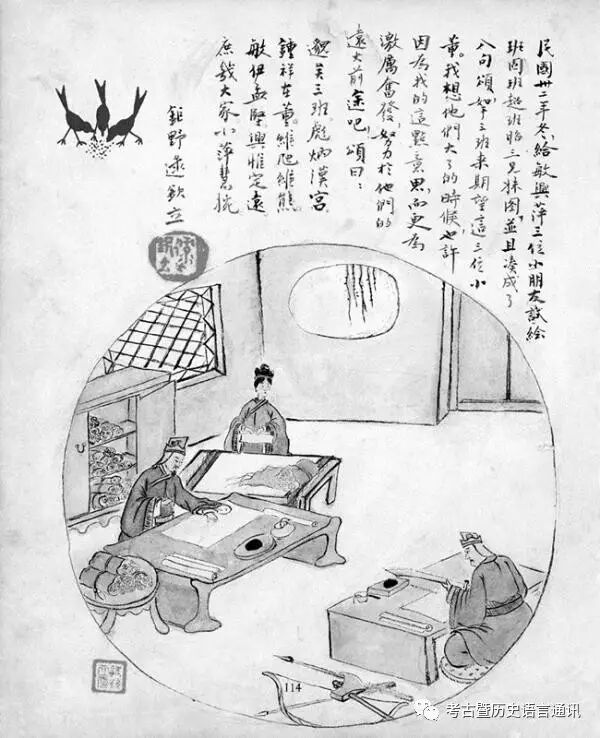 民國卅二年冬，給敏興萍三位小朋友試繪
班固班超班昭三兄妹圖，並且湊成了
八句頌，三班来期望這三位小
輩。我想他們大了的時候，也許
因為我的這點意思，而更為
激厲奮發，努力於他們的
遠大前途吧，頌曰：
邈矣三班，彪炳漢宮
鍾祥在董，維羆維熊
敏伊孟堅興惟定遠
庶幾大家小萍慧婉
鉅野逯欽立
114
考古暨历史语言通讯